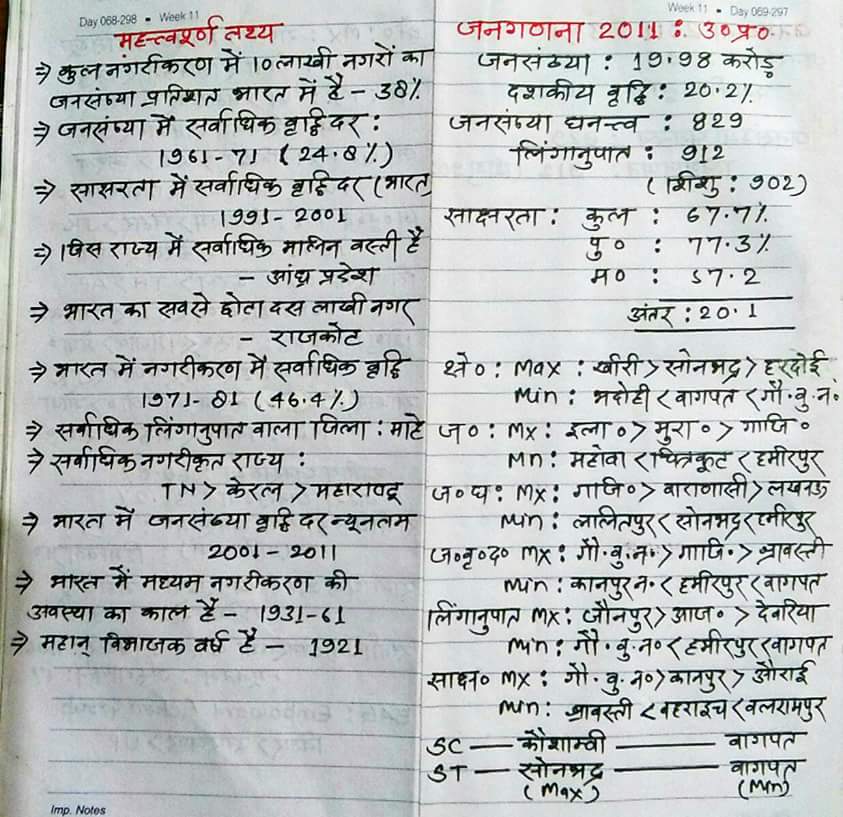 Day 068-298 • Week 11
महत्त्वपूर्ण तथ्य
⇒ कुल नगरीकरण में 10 लाखी नगरों का
जनसंख्या प्रतिशत भारत में है - 38%
⇒ जनसंख्या में सर्वाधिक वृद्धि दर :
1961-71 (24.8%)
⇒ साक्षरता में सर्वाधिक वृद्धि दर (भारत)
1991-2001
⇒ किस राज्य में सर्वाधिक मलिन वस्ती है
- आंध्र प्रदेश
⇒ भारत का सबसे छोटा दस लाखी नगर
- राजकोट
⇒ भारत में नगरीकरण में सर्वाधिक वृद्धि
1971-81 (46.4%)
⇒ सर्वाधिक लिंगानुपात वाला जिला : माहे
⇒ सर्वाधिक नगरीकृत राज्य :
TN > केरल > महाराष्ट्र
⇒ भारत में जनसंख्या वृद्धि दर न्यूनतम
2001-2011
⇒ भारत में मध्यम नगरीकरण की
अवस्था का काल है - 1931-61
⇒ महान् विभाजक वर्ष है - 1921
Imp. Notes
Week 11 • Day 069-297
जनगणना 2011 : उ०प्र०
जनसंख्या : 19.98 करोड़
दशकीय वृद्धि : 20.2%
जनसंख्या घनत्व : 829
लिंगानुपात : 912
(शिशु : 902)
साक्षरता : कुल : 67.7%
पु० : 77.3%
म० : 57.2
अंतर : 20.1
क्षे० : Max : खीरी > सोनभद्र > हरदोई
Min : भदोही < वागपत < गौ.बु.न०
ज० : Mx : इला० > मुरा० > गाजि०
Mn : महोवा < चित्रकूट < हमीरपुर
ज०घ० : Mx : गाजि० > वाराणासी > लखनऊ
Min : ललितपुर < सोनभद्र < हमीरपुर
ज०वृ०द० Mx : गौ.बु.न० > गाजि. > श्रावस्ती
Min : कानपुर न. < हमीरपुर < वागपत
लिंगानुपात Mx : जौनपुर > आज० > देवरिया
Min : गौ.बु.न० < हमीरपुर < वागपत
साक्ष० Mx : गौ.बु.न० > कानपुर > औराई
Min : श्रावस्ती < वहराइच < वलरामपुर
SC — कौशाम्वी — वागपत
ST — सोनभद्र — वागपत
(Max) (Min)